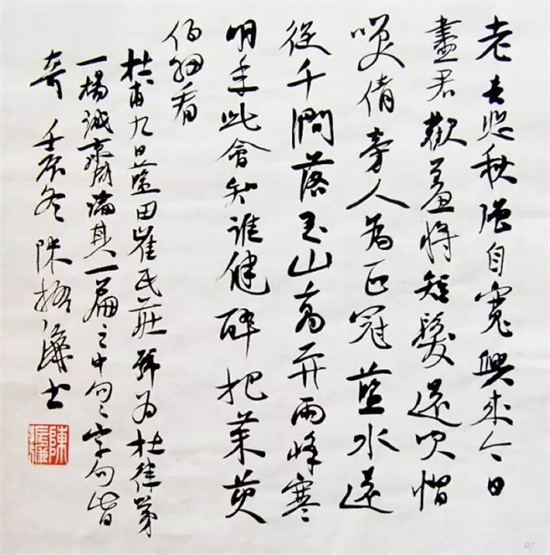 老去悲秋強自寬興来今日
盡君歡羞將短髮還吹帽
咲倩旁人為正冠藍水遠
從千澗落玉山高并兩峰寒
明年此會知誰健醉把茱萸
仔細看
杜甫九日藍田崔氏莊號為杜律第
一楊誠齋論其一篇之中句々字句皆
奇 壬辰冬 陳振濂書